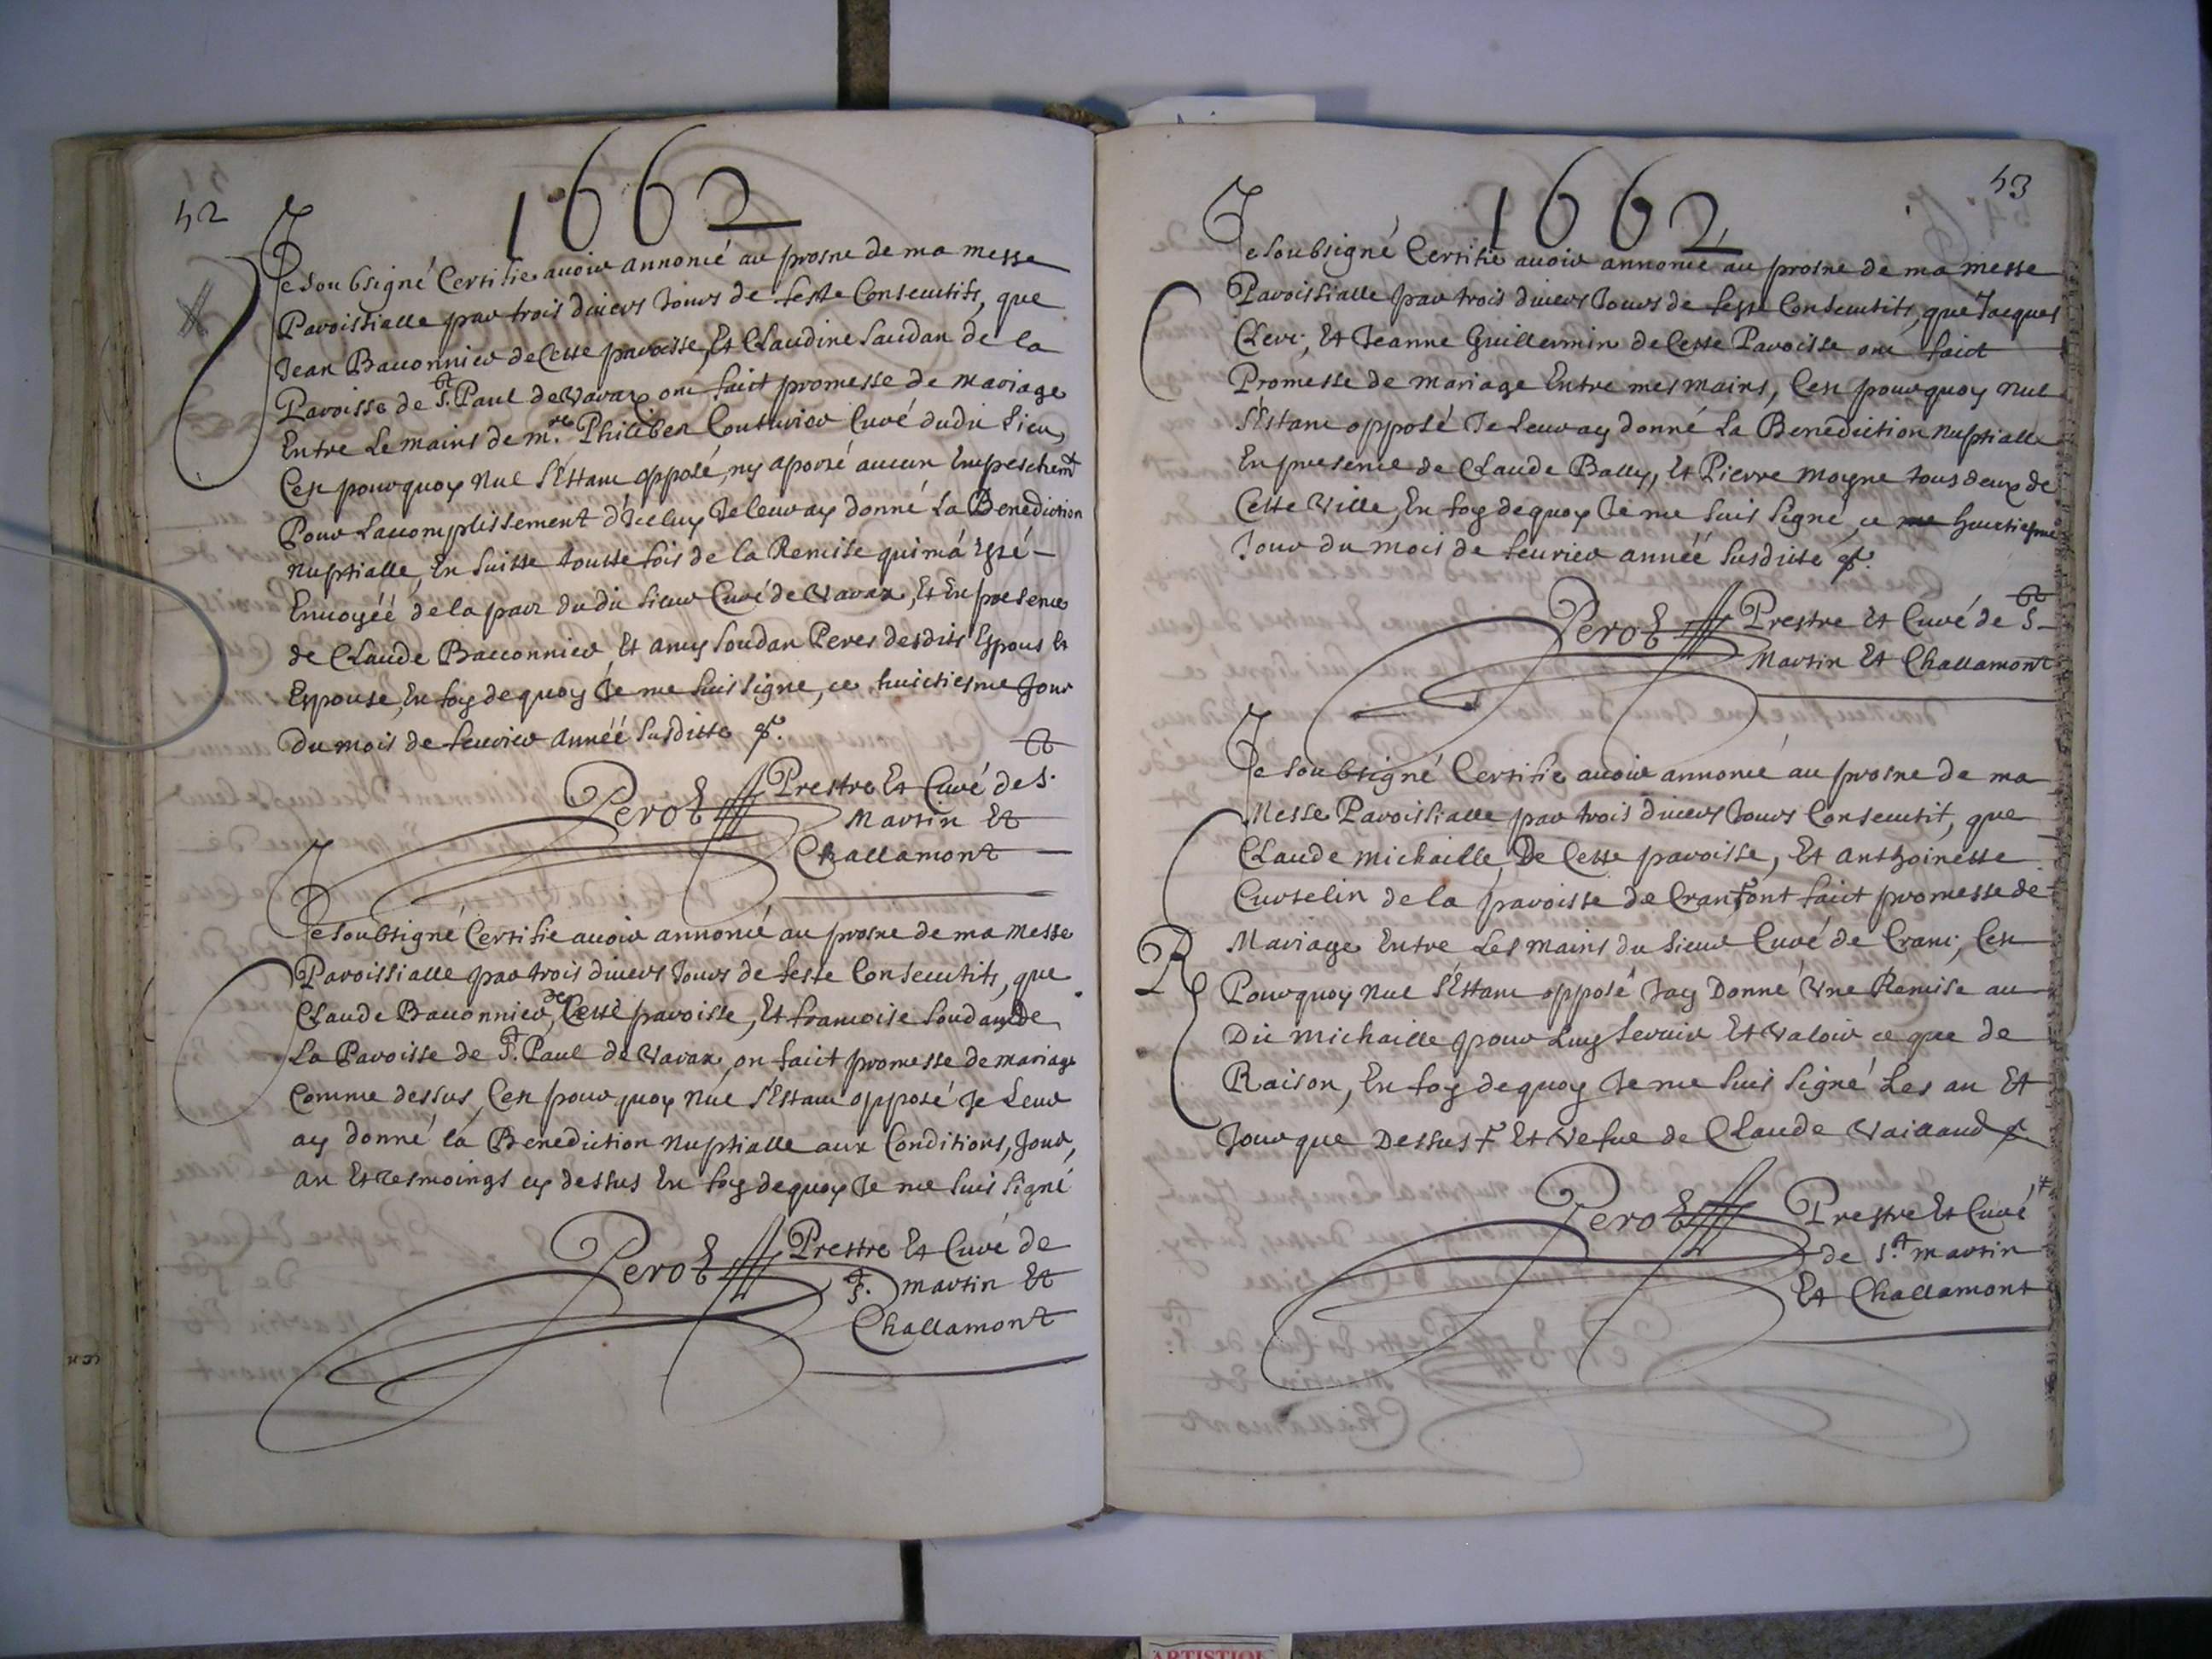 52
1662
Je soubsigné Certifie avoir annoncé au prosne de ma messe
Paroissialle par trois divers Jours de feste Consecutifs, que
Jean Baconnier de Cette paroisse, Et Claudine Saudan de la
Paroisse de St. Paul de Varax ont faict promesse de mariage
Entre Le mains de mre. Philiber Couturier Curé dudit Lieu,
Cest pourquoy Nul S'Estant opposé, ny aporté aucun Empeschemt
Pour Lacomplissement d'Iceluy Je leur ay donné La Benediction
Nuptialle, En suitte toutte fois de la Remise qui m'a Esté
Envoyéé de la part dudit sieur Curé de Varax, Et En presence
de Claude Baconnier Et Soudan Peres desdits Espous Et
Espouse, En foy de quoy Je me suis signe, ce huictiesme Jour
Du mois de fevrier annéé susditte
Perot Prestre Et Curé de St
Martin Et
Challamont
Je soubsigné Certifie avoir annoncé au prosne de ma Messe
Paroissialle par trois divers Jours de feste Consecutifs, que
Claude Baconnier, de Cette paroisse, Et francoise Soudan De
La Paroisse de St. Paul de Varax, on faict promesse de mariage
Comme dessus, Cest pour quoy Nul S'Estant opposé Je Leur
ay donné la Benediction Nuptialle aux Conditions, Jour,
an Et Tesmoings cy dessus En foy de quoy Je me suis signé
Perot Prestre Et Curé de
St. Martin Et
Challamont
53
1662
Je soubsigné Certifie avoir annoncé au prosne de ma messe
Paroissialle par trois divers Jours de feste Consecutifs, que Jacques
Clerc, Et Jeanne Guillermin de Cette Paroisse ont faict
Promesse de mariage Entre mes mains, Cest pourquoy nul
S'Estant opposé Je Leur ay donné La Benediction Nuptialle
En presence de Claude Bally, Et Pierre Moyne tous deux de
Cette Ville, En foy de quoy Je me suis signé, ce huictiesme
Jour du mois de fevrier annéé susditte
Perot Prestre Et Curé de St
Martin Et Challamont
Je soubsigné Certifie avoir annoncé au prosne de ma
Messe Paroissialle par trois divers Jours Consecutif, que
Claude Michaille, De Cette paroisse, Et Anthoinette
Curtelin de la paroisse de Crant ont faict promesse de
Mariage Entre Les mains du Sieur Curé de Crant, Cest
R
Pourquoy Nul S'Estant opposé Jay Donné Vne Remise au
Dit Michaille pour Luy servir Et Valoir ce que de
Raison, En foy de quoy Je me suis signé Les an Et
Jour que Dessus Et Vefue de Claude Vaillaud
Perot Prestre Et Curé
de St. Martin
Et Challamont